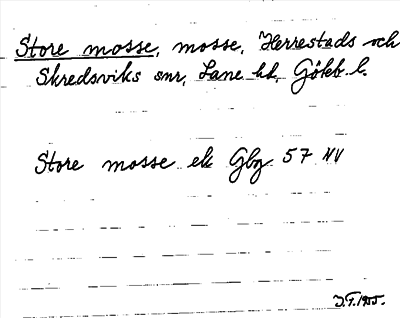 Store mosse, mosse, Herrestads och
Skredsviks snr, Lane hd, Gökb. l.
Store mosse ek Gbg 57 NV
J.T. 1955.